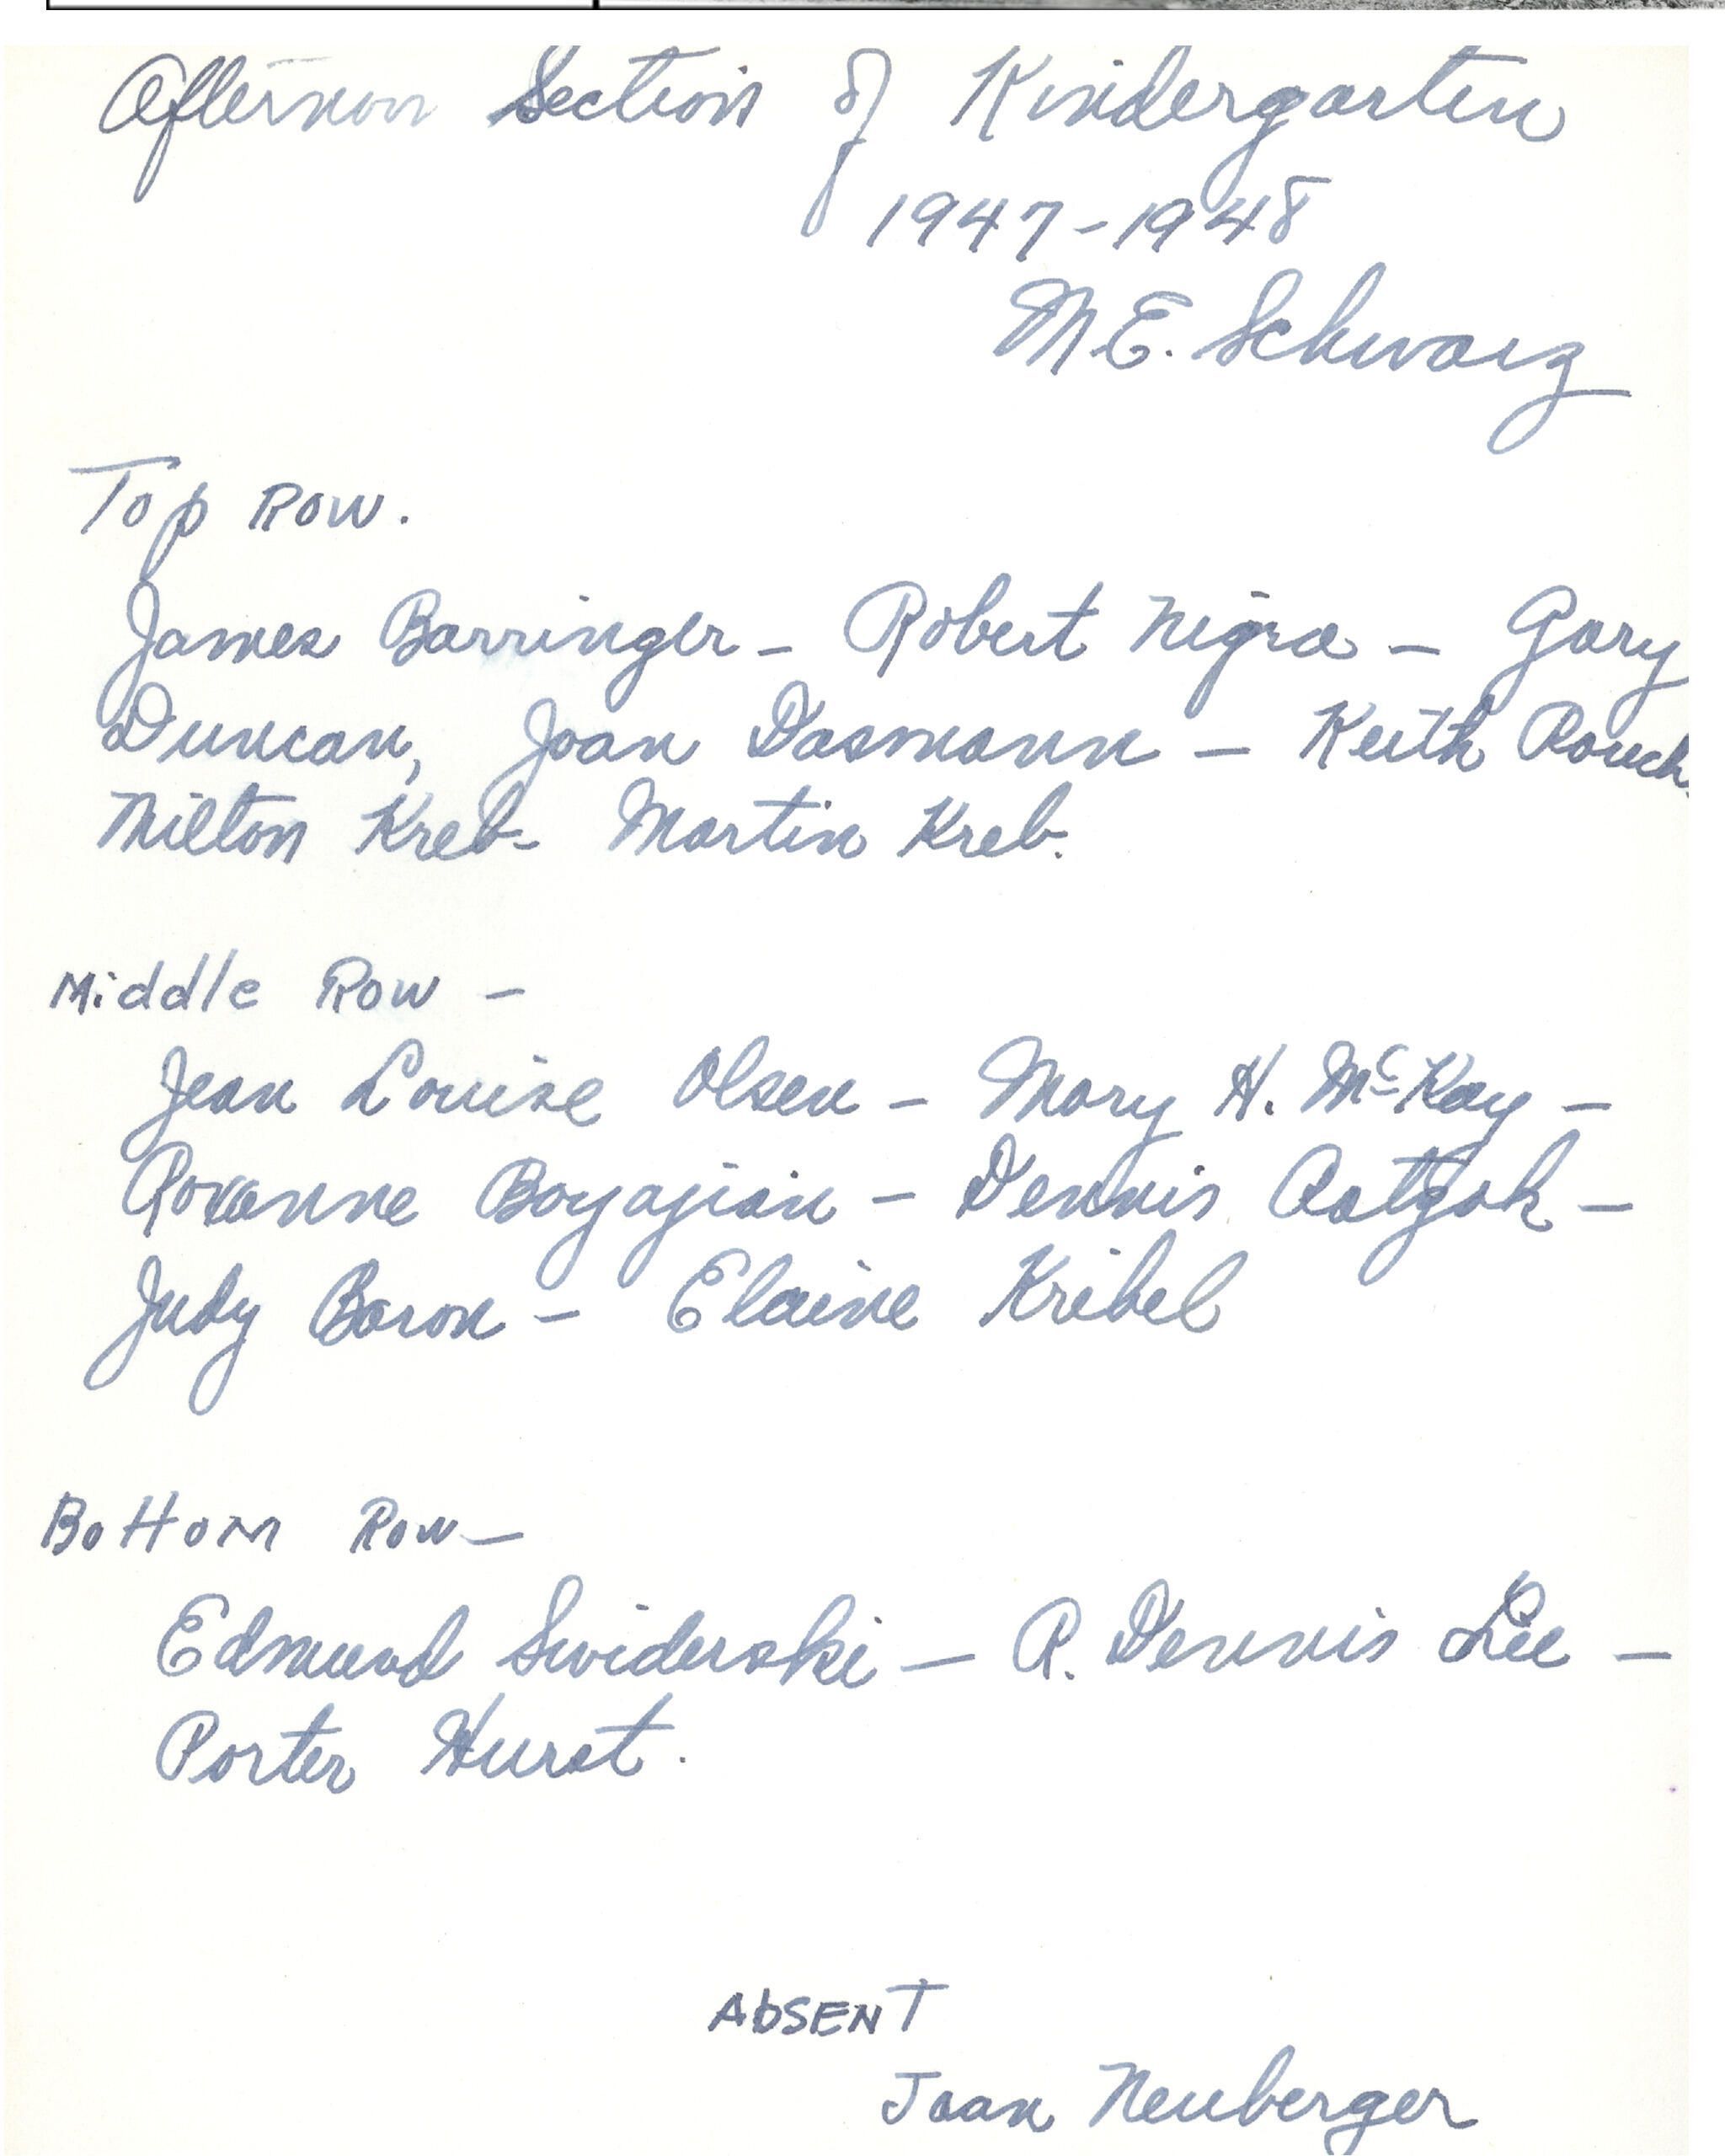 Afternoon Section of Kindergarten
1947-1948
M.E. Schwarz
Top Row.
James Barringer - Robert Nigra - Gary
Duncan, Joan Dasmann - Keith Rouch
Milton Kreb - Martin Kreb.
Middle Row -
Jean Louise Olsen - Mary H. McKay -
Roxanne Boyajian - Dennis -
Judy Baron - Elaine Kribel
Bottom Row -
Edmund Swiderski - R. Dennis Lee -
Porter Hurst.
AbSENT
Joan Neuberger